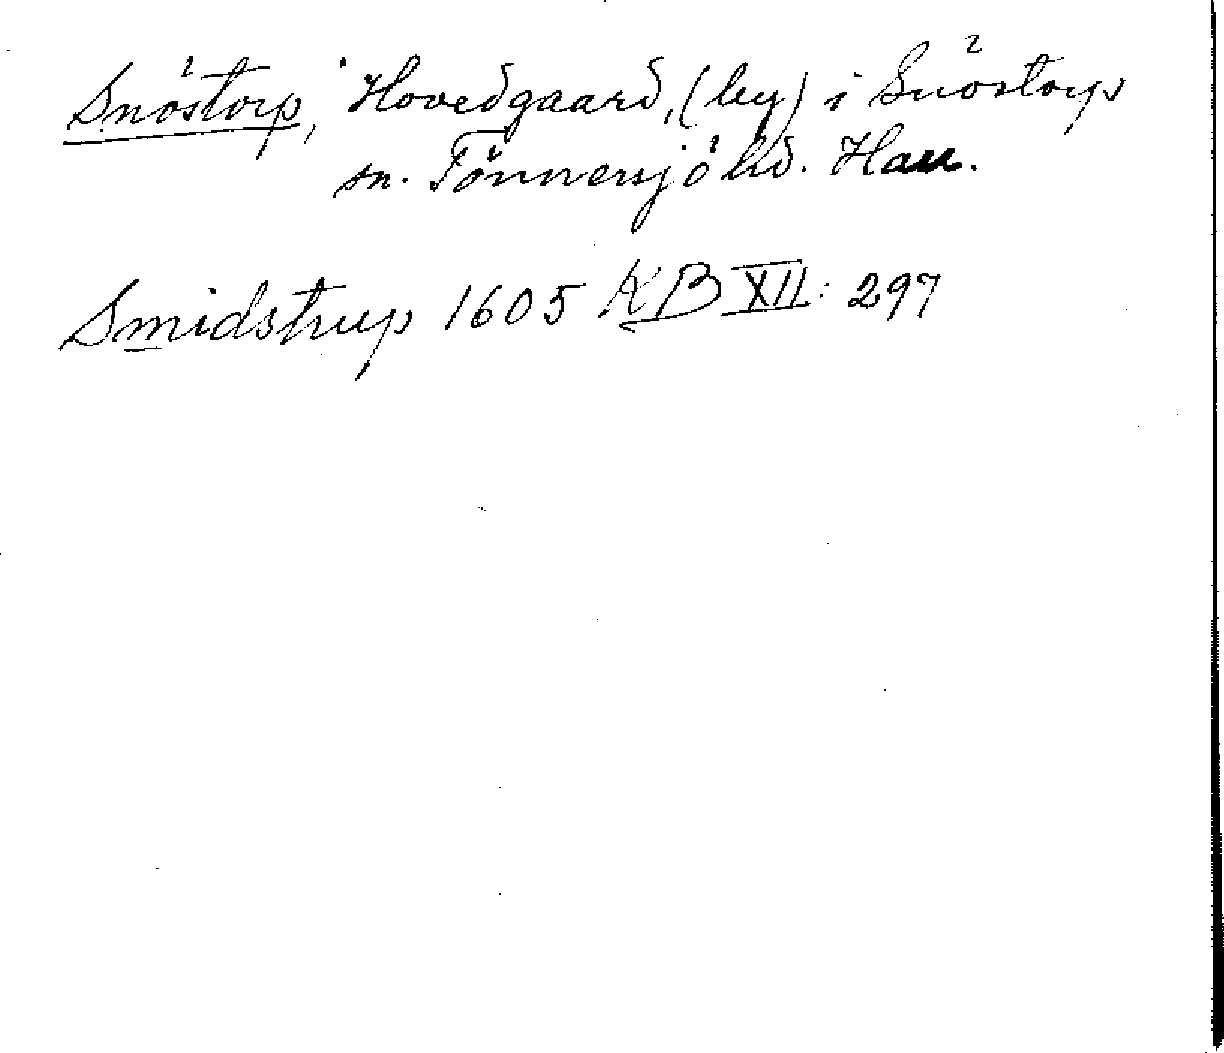 Snöstorp, Hovedgaard, (by) i Snöstorps
sn. Tönnersjö hd. Hall.
Smidstrup 1605 KB XII: 297